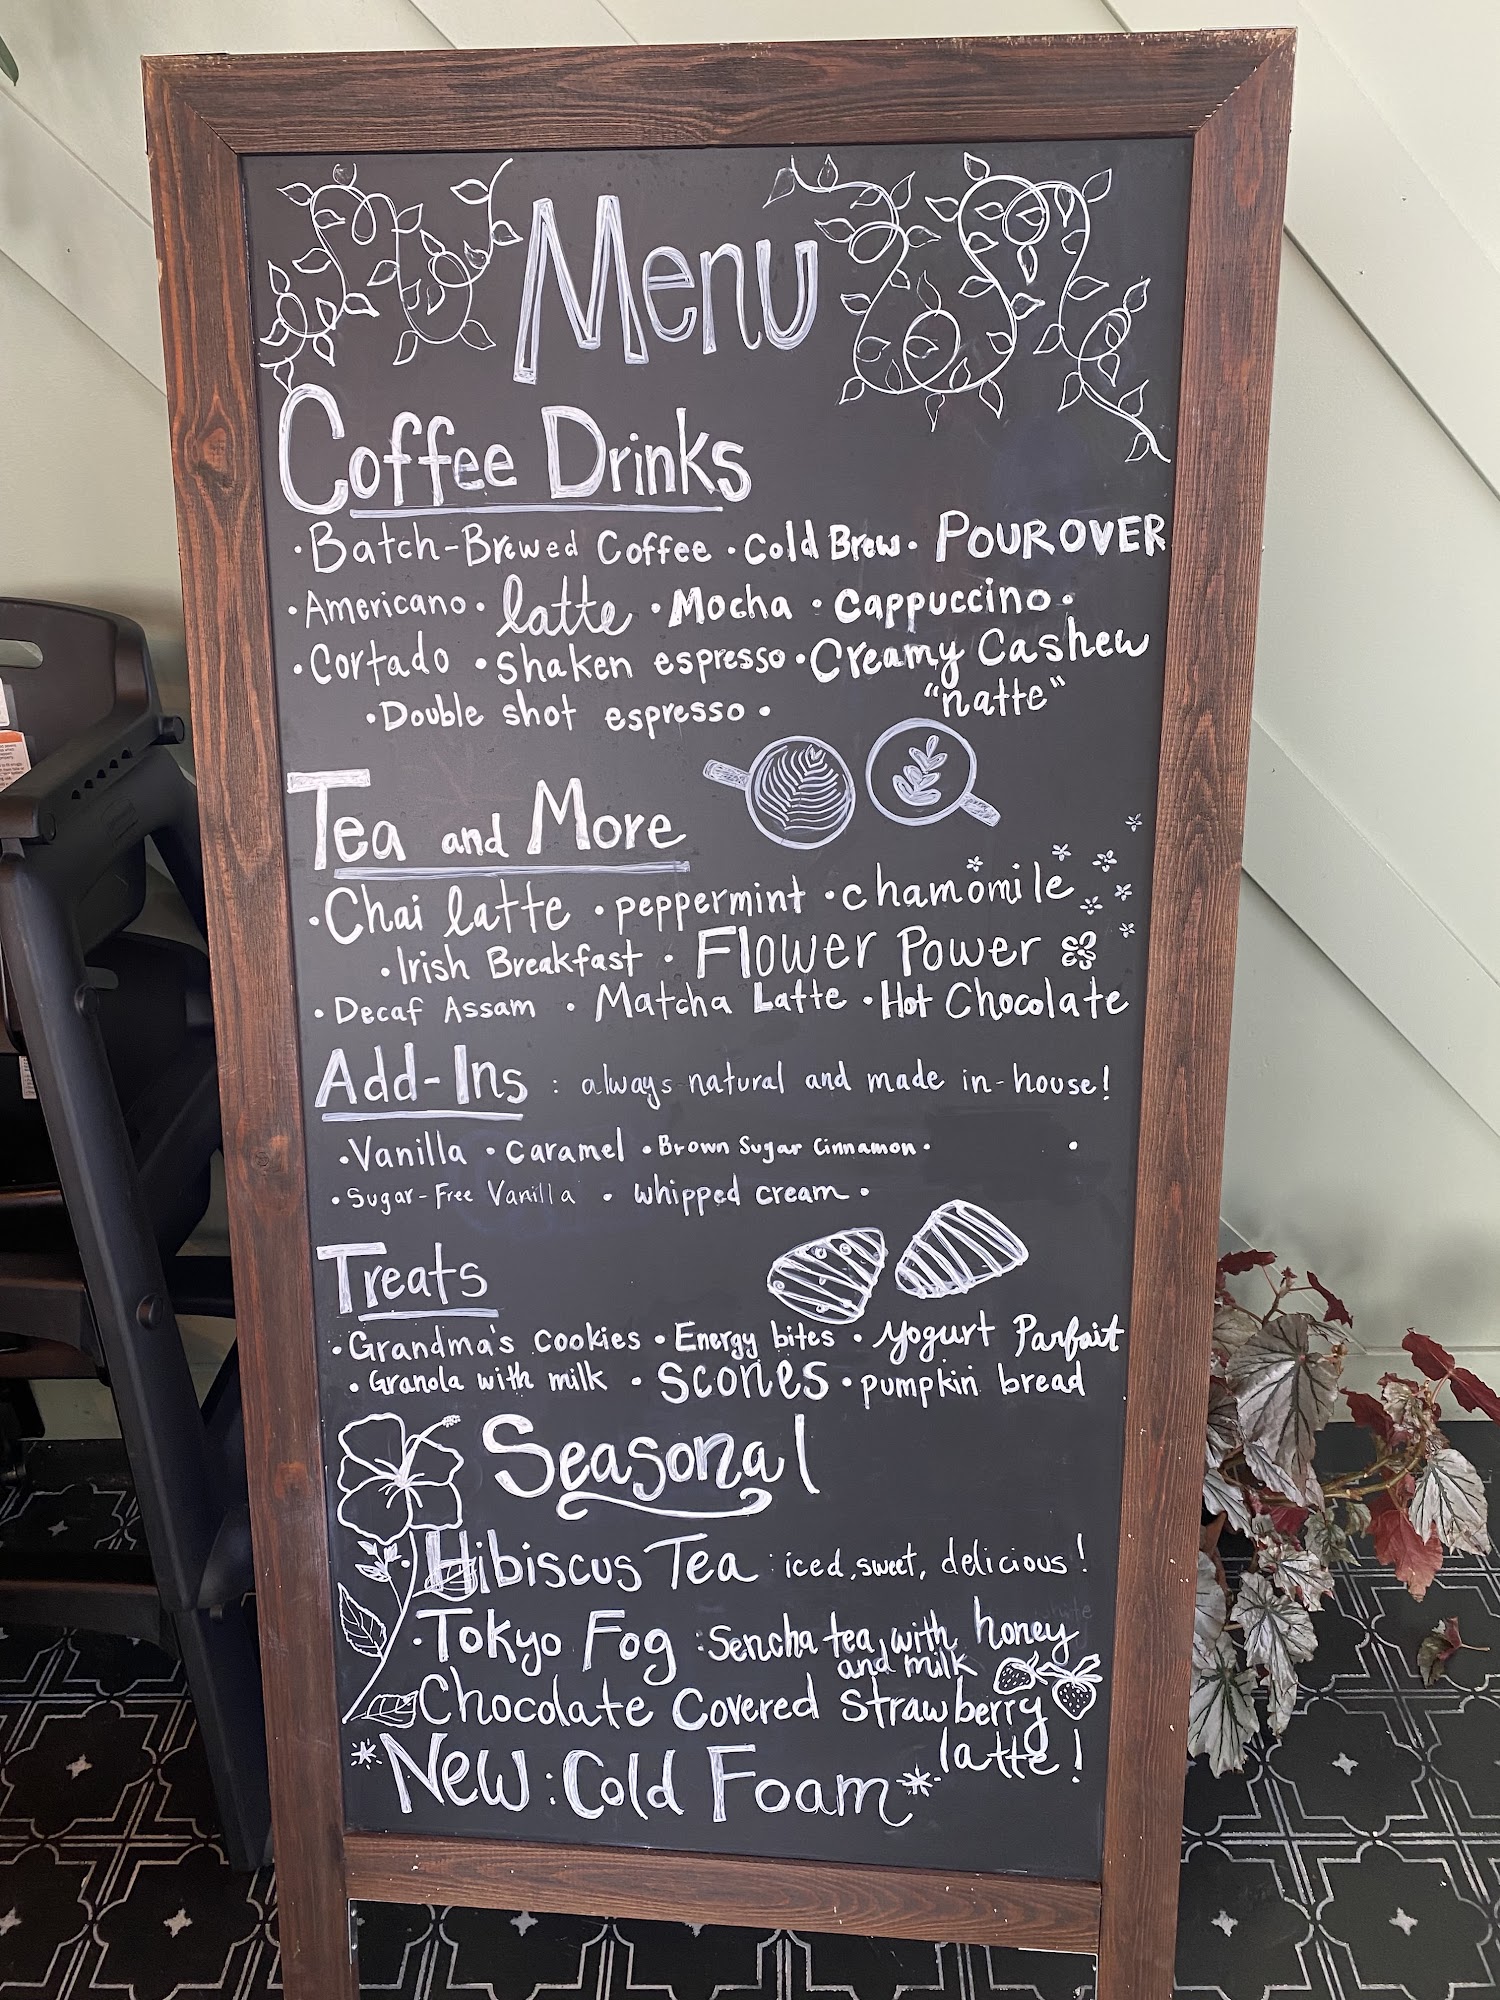 Menu
Coffee Drinks
· Batch-Brewed Coffee · Cold Brew · POUR OVER
· Americano · latte · Mocha · Cappuccino ·
· Cortado · shaken espresso · Creamy Cashew
"natte"
· Double shot espresso ·
Tea and More
· Chai latte · peppermint · chamomile
· Irish Breakfast · Flower Power
· Decaf Assam · Matcha Latte · Hot Chocolate
Add-Ins : always natural and made in-house!
· Vanilla · Caramel · Brown Sugar Cinnamon · ·
· Sugar-Free Vanilla · whipped cream ·
Treats
· Grandma's Cookies · Energy bites · Yogurt Parfait
· Granola with milk · Scones · pumpkin bread
Seasonal
· Hibiscus Tea : iced, sweet, delicious!
· Tokyo Fog : Sencha tea, with honey
and milk
Chocolate Covered Strawberry
latte!
* New : Cold Foam *